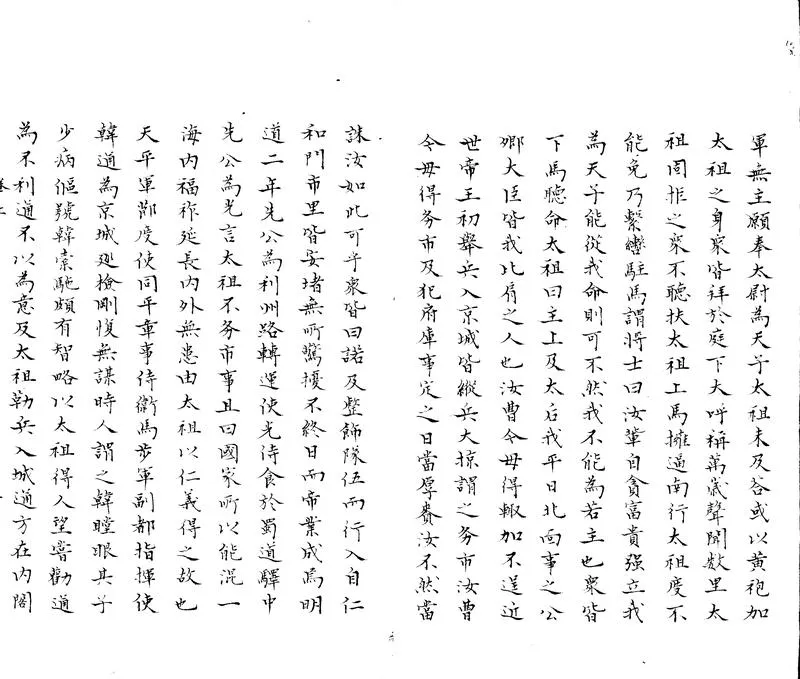 軍無主願奉太尉為天子太祖未及荅或以黃袍加
太祖之身衆皆拜於庭下大呼稱萬歲聲聞數里太
祖固拒之衆不聽扶太祖上馬擁逼南行太祖度不
能免乃繫轡駐馬謂將士曰汝輩自貪富貴强立我
為天子能從我命則可不然我不能為若主也衆皆
下馬聽命太祖曰主上及太后我平日北面事之公
卿大臣皆我比肩之人也汝曹今毋得輙加不逞近
世帝王初舉兵入京城皆縱兵大掠謂之夯市汝曹
今毋得夯市及犯府庫事定之日當厚賚汝不然當
誅汝如此可乎衆皆曰諾及整飾隊伍而行入自仁
和門市里皆安堵無所驚擾不終日而帝業成焉明
道二年先公為利州路轉運使光侍食於蜀道驛中
先公為光言太祖不夯市事且曰國家所以能混一
海内福祚延長内外無患由太祖以仁義得之故也
天平軍節度使同平章事侍衛馬步軍副都指揮使
韓通為京城廵檢剛愎無謀時人謂之韓瞠眼其子
少病傴號韓橐駞頗有智略以太祖得人望嘗勸通
為不利通不以為意及太祖勒兵入城通方在内閣